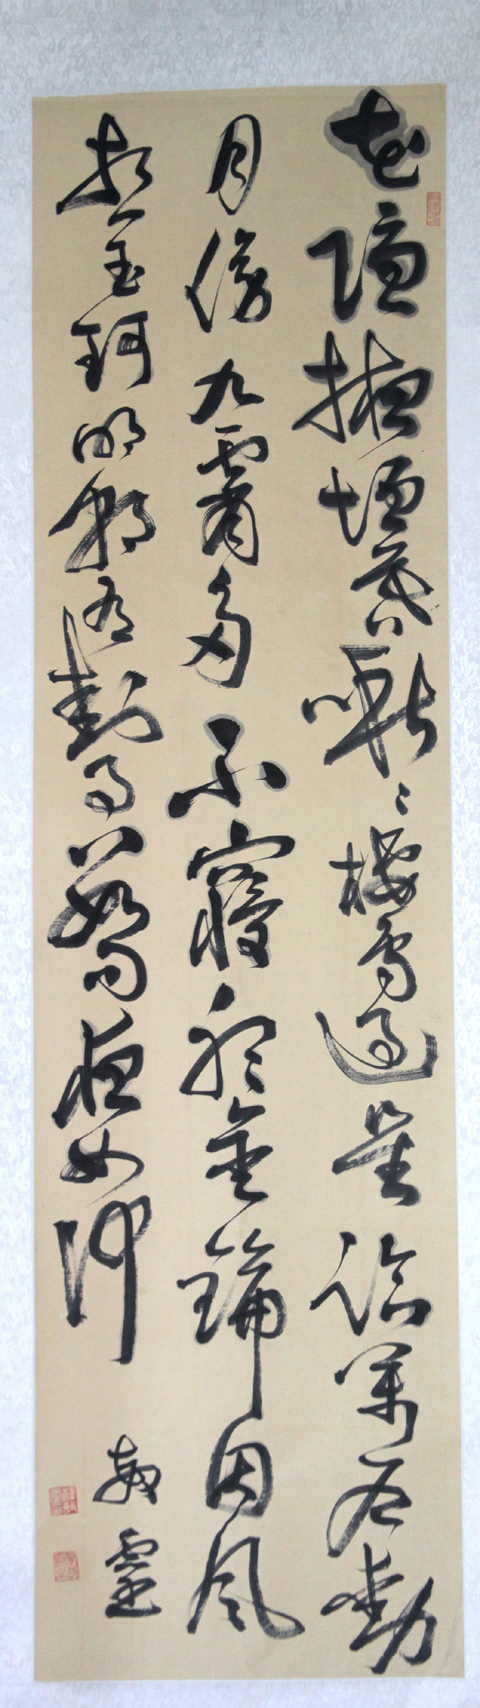 花隱掖垣暮啾〻棲鳥過星臨萬戶動
月傍九霄多不寢聽金鑰因風
想玉珂明朝有封事數問夜如何